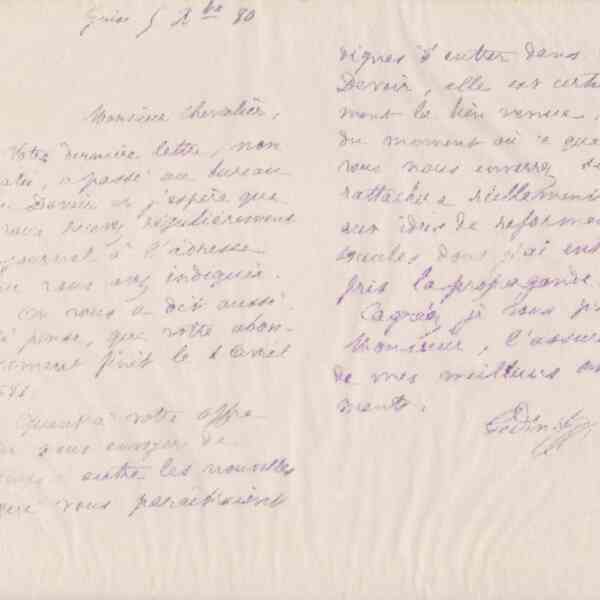 Guise 5 Xbre 80
Monsieur Chevalier,
Votre dernière lettre, non
datée, a passé au bureau
du Devoir et j'espère que
vous recevez régulièrement
journal à l'adresse
que vous avez indiquée.
On vous a dit aussi
je pense, que votre abon-
nement finit le 1 avril
Quant à votre offre
de nous envoyer de
outre les nouvelles
que vous paraîtraient
dignes d'entrer dans
Devoir, elle est certai
ment la bien venue,
du moment où ce que
vous nous enverrez se
rattachera réellement
aux idées de réformes
sociales dont j'ai ent
pris la propagande.
Agréez je vous p
Monsieur, l'assur
de mes meilleurs
ments.
Godin